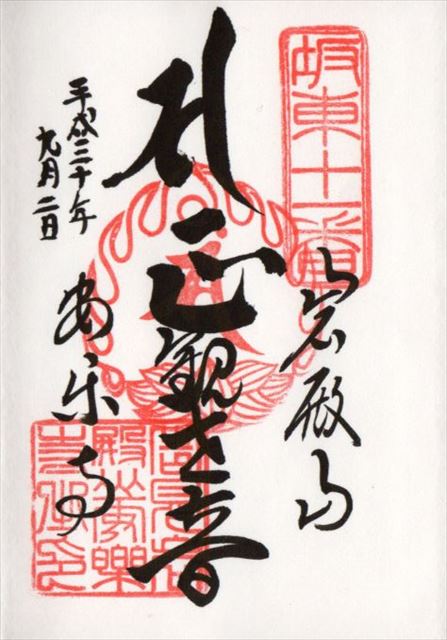 坂東十一番
岩殿山
正観世音
安楽寺
平成三十年
九月二日